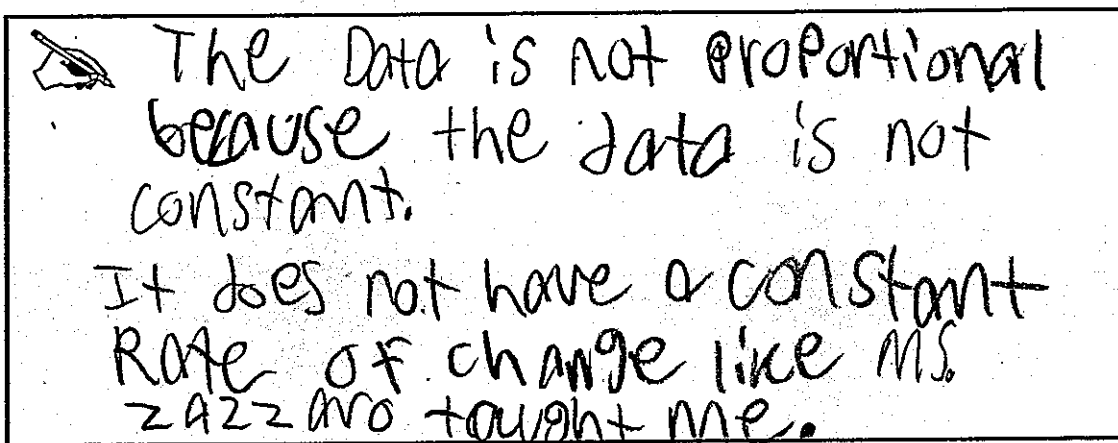 The Data is not proportional
because the data is not
constant.
It does not have a constant
Rate of change like Ms.
zazzaro tought me.